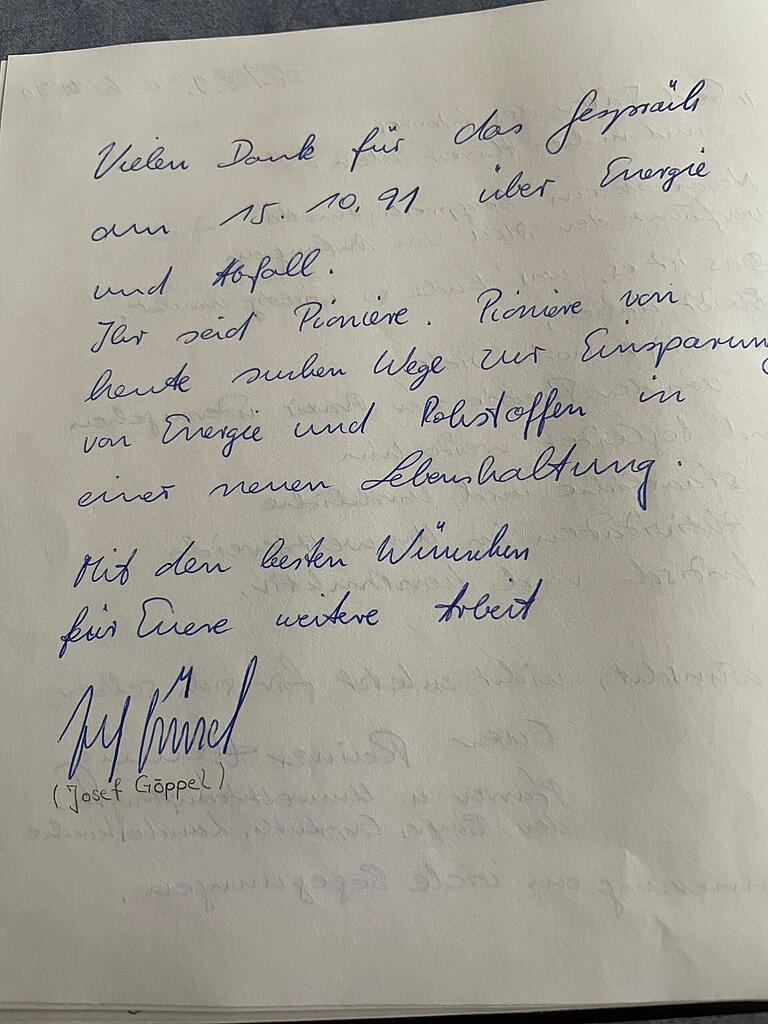 Vielen Dank für das Gespräch
am 15. 10. 91 über Energie
und Abfall.
Ihr seid Pioniere. Pioniere von
heute suchen Wege zur Einsparung
von Energie und Rohstoffen in
einer neuen Lebenshaltung.
Mit den besten Wünschen
für Euere weitere Arbeit
Josef Göppel
(Josef Göppel)